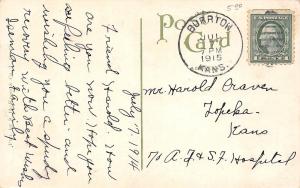 Post
Card
BURRTON
JUL
7 PM
1915
KANS.
July 7, 1914
Friend Harold. How
are you now. Hope you
are feeling better and
wishing you a speedy
recovery with best wishes
Family.
Mr Harold Craven
Topeka
Kans
% A. T. & S. F. Hospital